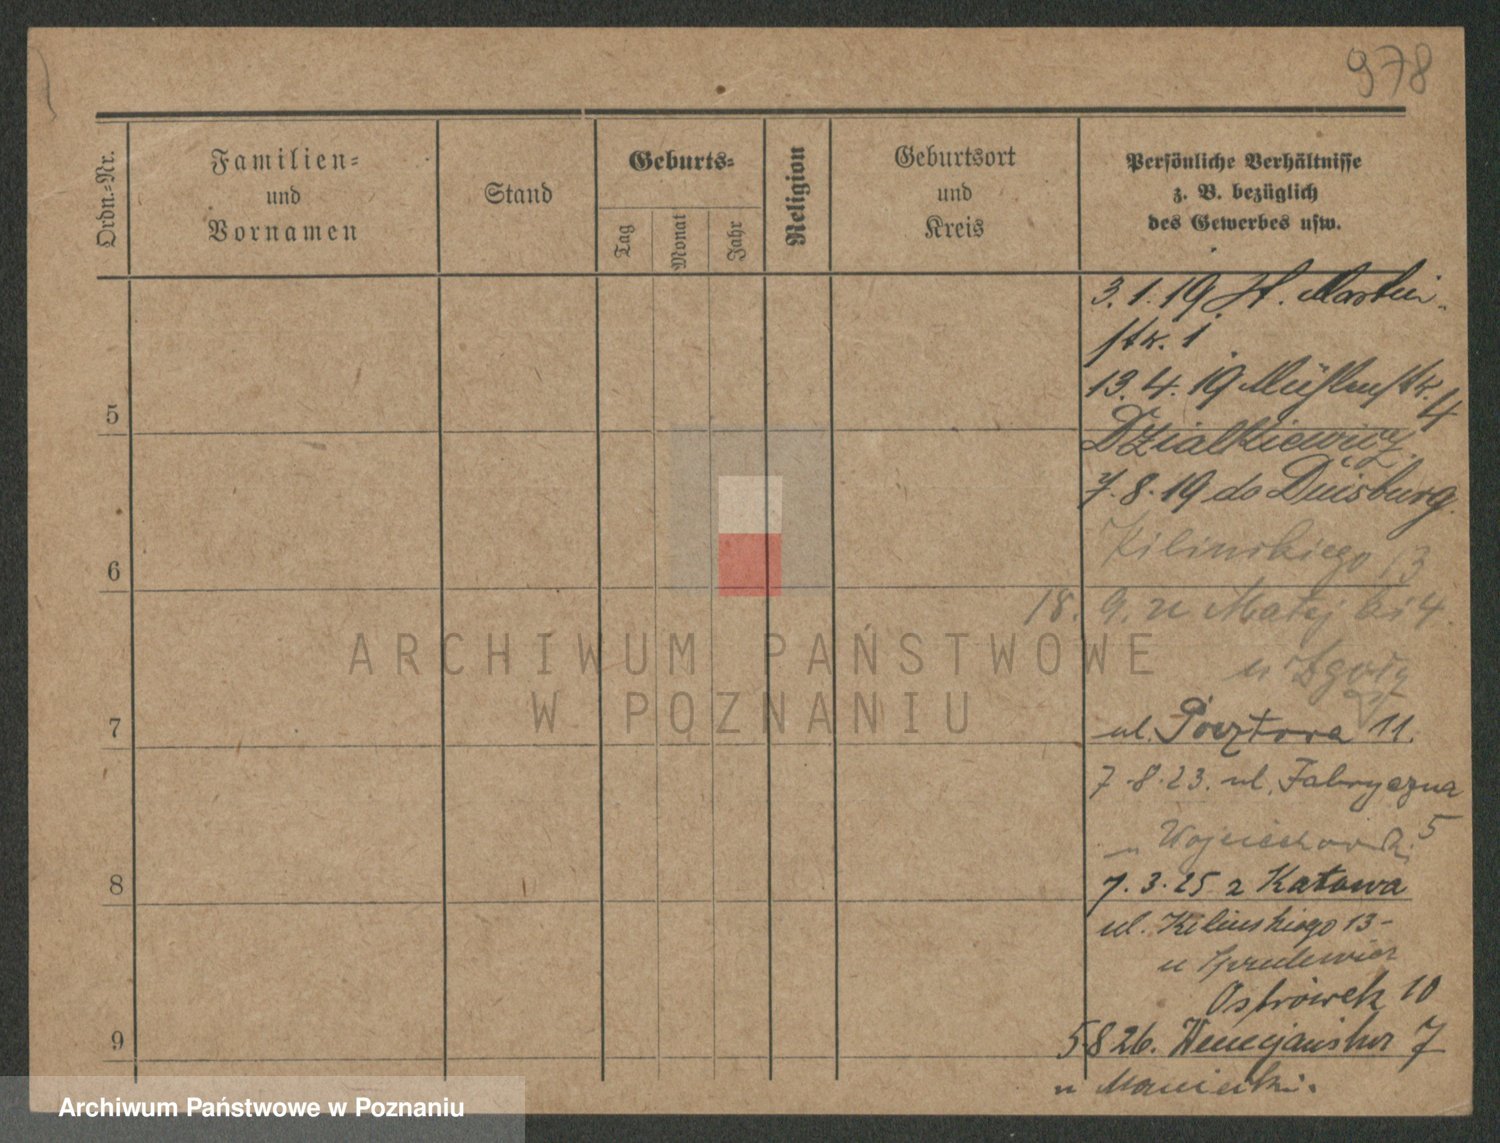 978
Ordn.-Nr.
Familien-
und
Vornamen
Stand
Geburts-
Tag
Monat
Jahr
Religion
Geburtsort
und
Kreis
Persönliche Verhältnisse
z. B. bezüglich
des Gewerbes usw.
3.1.19 St. Martin-
str. 1
13.4.19 Mühlenstr. 4
5
Dzialkiewicz
7.8.19 do Duisburg
Kilinskiego 13
6
18. 9. u Matejki 4
u Zgoły
ul. Pocztowa 11.
7
7.8.23. ul. Fabryczna
5
u Wojciechowski
7.3.25 z
8
ul. Kilinskiego 13-
u
Ostrówek 10
5 8 26. Wenecjańska 7
9
u
ARCHIWUM PAŃSTWOWE
W POZNANIU
Archiwum Państwowe w Poznaniu